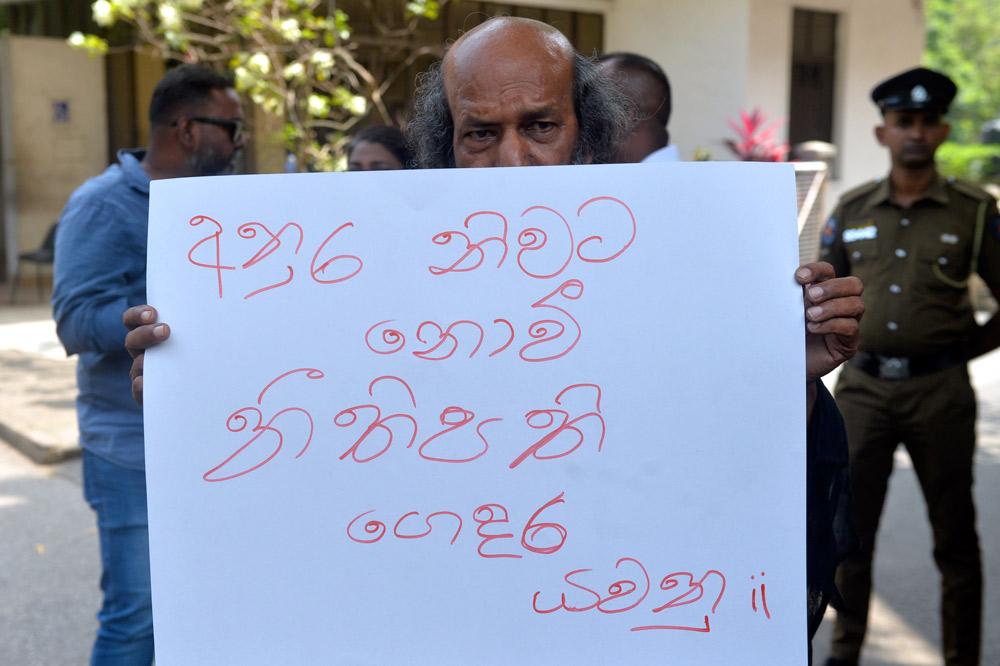 අනුර නිවට
නොවී
නීතිපති
ගෙදර
යවනු ii